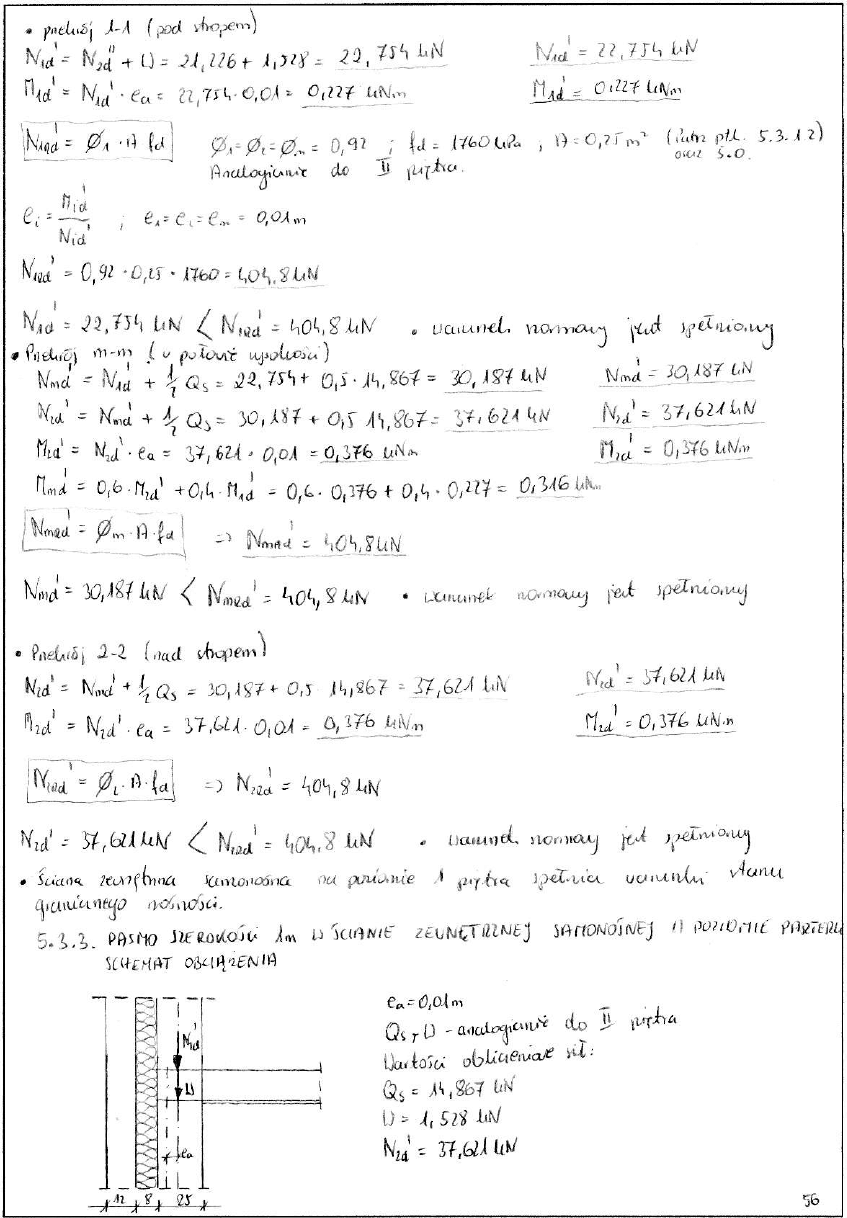 • przekrój 1-1 (pod stropem)
N1d' = N2d'' + W = 21,226 + 1,528 = 22,754 kN    N1d' = 22,754 kN
M1d' = N1d' · ea = 22,754 · 0,01 = 0,227 kNm    M1d' = 0,227 kNm
N1Rd' = Ø1 · A · fd    Ø1 = Øi = Øm = 0,92 ; fd = 1760 kPa , A = 0,25 m² (Patrz pkt. 5.3.1.2) oraz 5.0.
Analogicznie do II piętra.
ei = Mid' / Nid' ; e1 = ei = em = 0,01 m
N1Rd' = 0,92 · 0,25 · 1760 = 404,8 kN
N1d' = 22,754 kN < N1Rd' = 404,8 kN • warunek normowy jest spełniony
• Przekrój m-m (w połowie wysokości)
Nmd' = N1d' + 1/2 Qs = 22,754 + 0,5 · 14,867 = 30,187 kN    Nmd' = 30,187 kN
N2d' = Nmd' + 1/2 Qs = 30,187 + 0,5 14,867 = 37,621 kN    N2d' = 37,621 kN
M2d' = N2d' · ea = 37,621 · 0,01 = 0,376 kNm    M2d' = 0,376 kNm
Mmd' = 0,6 · M2d' + 0,4 · M1d' = 0,6 · 0,376 + 0,4 · 0,227 = 0,316 kNm
NmRd' = Øm · A · fd => NmRd' = 404,8 kN
Nmd' = 30,187 kN < NmRd' = 404,8 kN • warunek normowy jest spełniony
• Przekrój 2-2 (nad stropem)
N2d' = Nmd' + 1/2 Qs = 30,187 + 0,5 14,867 = 37,621 kN    N2d' = 37,621 kN
M2d' = N2d' · ea = 37,621 · 0,01 = 0,376 kNm    M2d' = 0,376 kNm
N2Rd' = Ø2 · A · fd => N2Rd' = 404,8 kN
N2d' = 37,621 kN < N2Rd' = 404,8 kN • warunek normowy jest spełniony
• Ściana zewnętrzna samonośna na poziomie 1 piętra spełnia warunki stanu
granicznego nośności.
5.3.3. PASMO SZEROKOŚCI 1m W ŚCIANIE ZEWNĘTRZNEJ SAMONOŚNEJ W POZIOMIE PARTERU
SCHEMAT OBCIĄŻENIA
ea = 0,01 m
Qs, W - analogicznie do II piętra
Wartości obliczeniowe sił:
Qs = 14,867 kN
W = 1,528 kN
N2d' = 37,621 kN
N2d'
W
ea
12 8 25
56